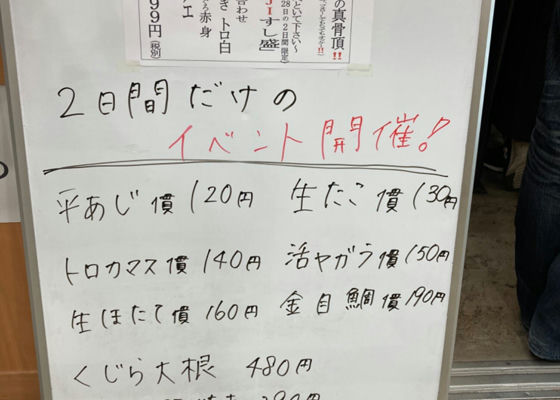 の真骨頂!!
28日の2日間限定)
すし盛"
合わせ
トロ白
赤身
99円(税別)
2日間だけの
イベント開催!
平あじ 償 120円
生たこ 償 130円
トロカマス 償 140円
活ヤガラ 償 150円
生ほたて 償 160円
金目鯛 償 190円
くじら大根 480円